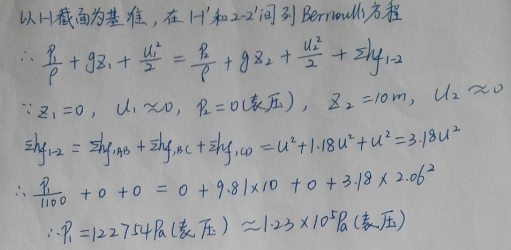 以1-1截面为基准，在1-1'和2-2'间列Bernoulli方程
∴ P₁/ρ + gz₁ + u₁²/2 = P₂/ρ + gz₂ + u₂²/2 + Σhf₁₋₂
∵ z₁=0, u₁≈0, P₂=0(表压), z₂=10m, u₂≈0
Σhf₁₋₂ = Σhf,AB + Σhf,BC + Σhf,CD = u²+1.18u²+u²=3.18u²
∴ P₁/1100 + 0 + 0 = 0 + 9.81×10 + 0 + 3.18×2.06²
∴ P₁=122754Pa(表压) ≈1.23×10⁵Pa(表压)